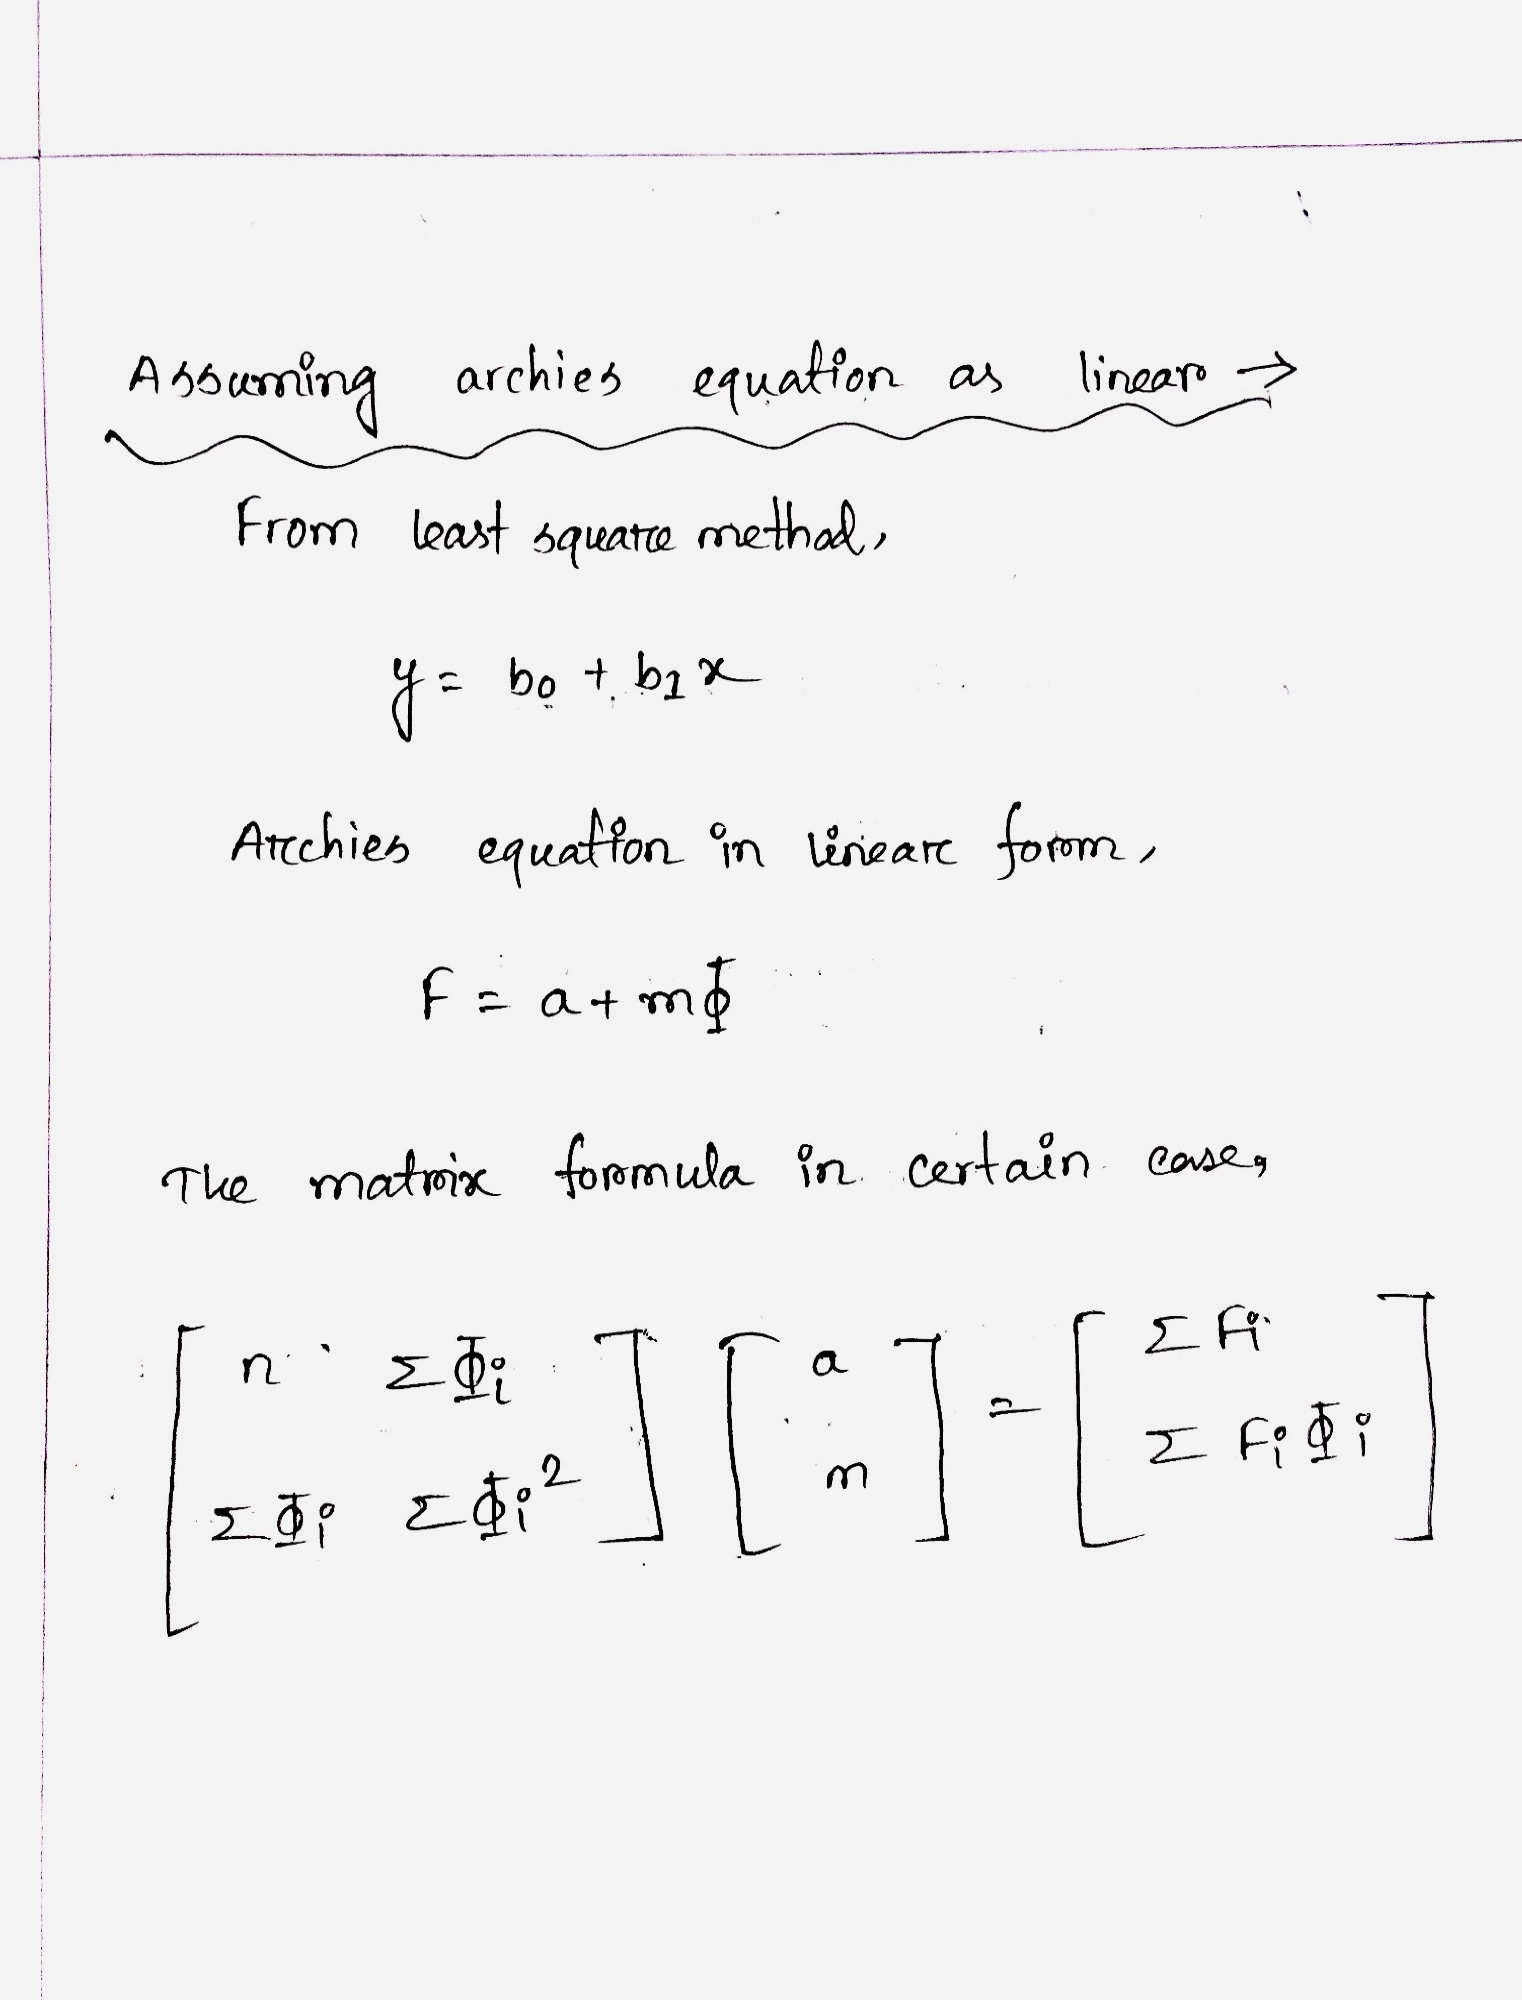 Assuming archies equation as linear →
From least square method,
y = b0 + b1 x
Archies equation in linear form,
F = a + mΦ
The matrix formula in certain case,
[ n ΣΦi ; ΣΦi ΣΦi² ] [ a ; m ] = [ ΣFi ; ΣFiΦi ]